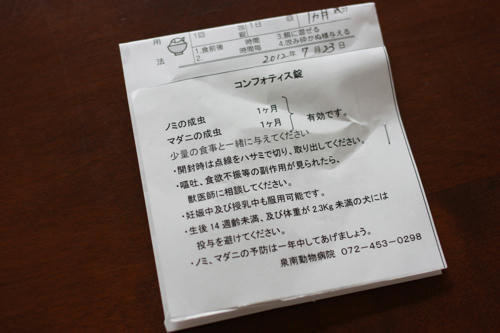 用法
1回 錠 1日 回 1カ月 分
1.食前後 時間 3.餌に混ぜる
2. 時間毎 4.噛み砕かぬ様与える
2012年 7月 23日
コンフォティス錠
ノミの成虫 1ヶ月
マダニの成虫 1ヶ月 有効です。
少量の食事と一緒に与えてください
・開封時は点線をハサミで切り、取り出してください。
・嘔吐、食欲不振等の副作用が見られたら、
獣医師に相談してください。
・妊娠中及び授乳中も服用可能です。
・生後14週齢未満、及び体重が2.3Kg未満の犬には
投与を避けてください。
・ノミ、マダニの予防は一年中してあげましょう。
泉南動物病院 072-453-0298